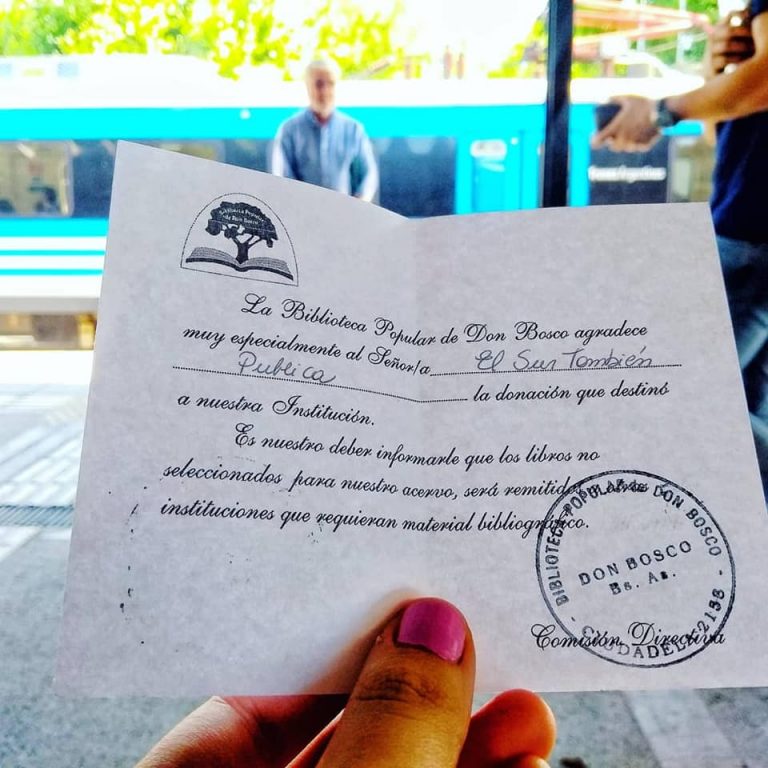 Biblioteca Popular
de Don Bosco
La Biblioteca Popular de Don Bosco agradece
muy especialmente al Señor/a El Sur También
Publica la donación que destinó
a nuestra Institución.
Es nuestro deber informarle que los libros no
seleccionados para nuestro acervo, será remitidos a otras
instituciones que requieran material bibliográfico.
BIBLIOTECA POPULAR DE DON BOSCO
DON BOSCO
Bs. As.
Comisión Directiva